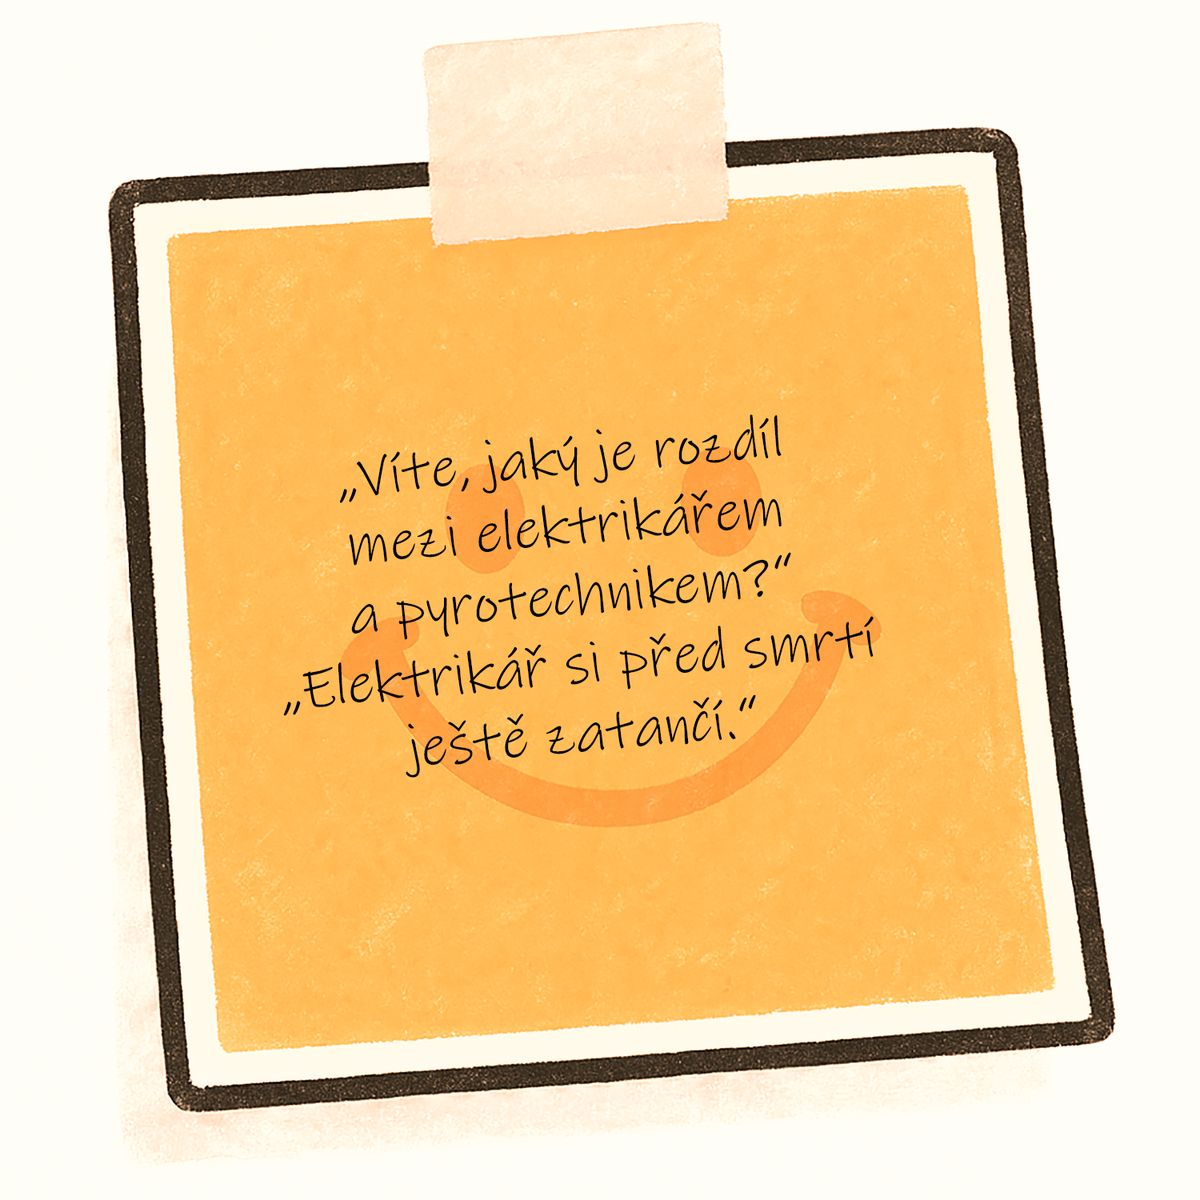 „Víte, jaký je rozdíl
mezi elektrikářem
a pyrotechnikem?“
„Elektrikář si před smrtí
ještě zatančí.“